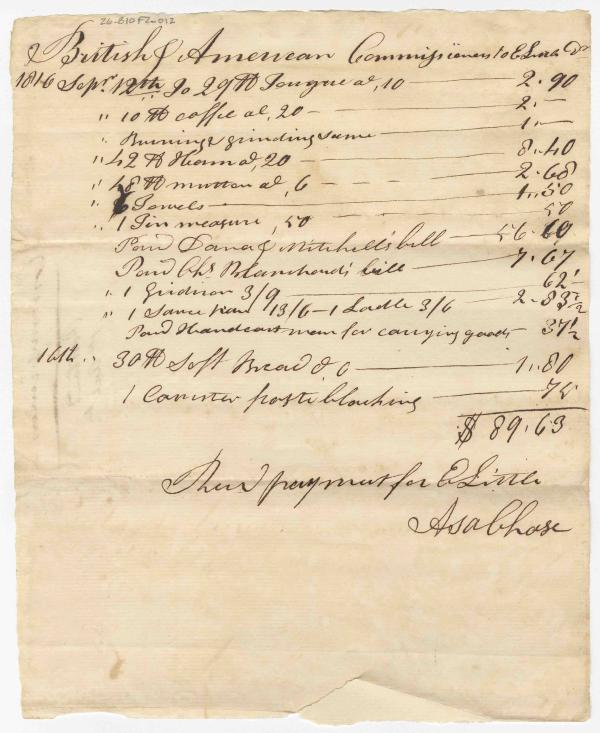 26-B10F2-012
British & American Commissioners to E Little Dr
1816 Sepr. 12th To 29 ℔ Tongue at, 10 — 2.90
" 10 ℔ coffee at, 20 — 2. —
" Burning & grinding same — 1. —
" 42 ℔ Ham at, 20 — 8.40
" 48 ℔ mutton at, 6 — 2.68
" 6 Towels — 1.50
" 1 Tin measure, 50 — 50
Paid Dana & Mitchell's bill — 56.60
Paid Chs Blanchard's bill — 7.67
" 1 Gridiron 3/9 — 62 1/2
" 1 Sauce pan 13/6 — 1 Ladle 3/6 2.83 1/2
Paid Handcart man for carrying goods — 37 1/2
16th " 30 ℔ Soft Bread @ 6 — 1.80
1 Canister paste blacking — 75
$ 89.63
Recd payment for E Little
Asa Chase